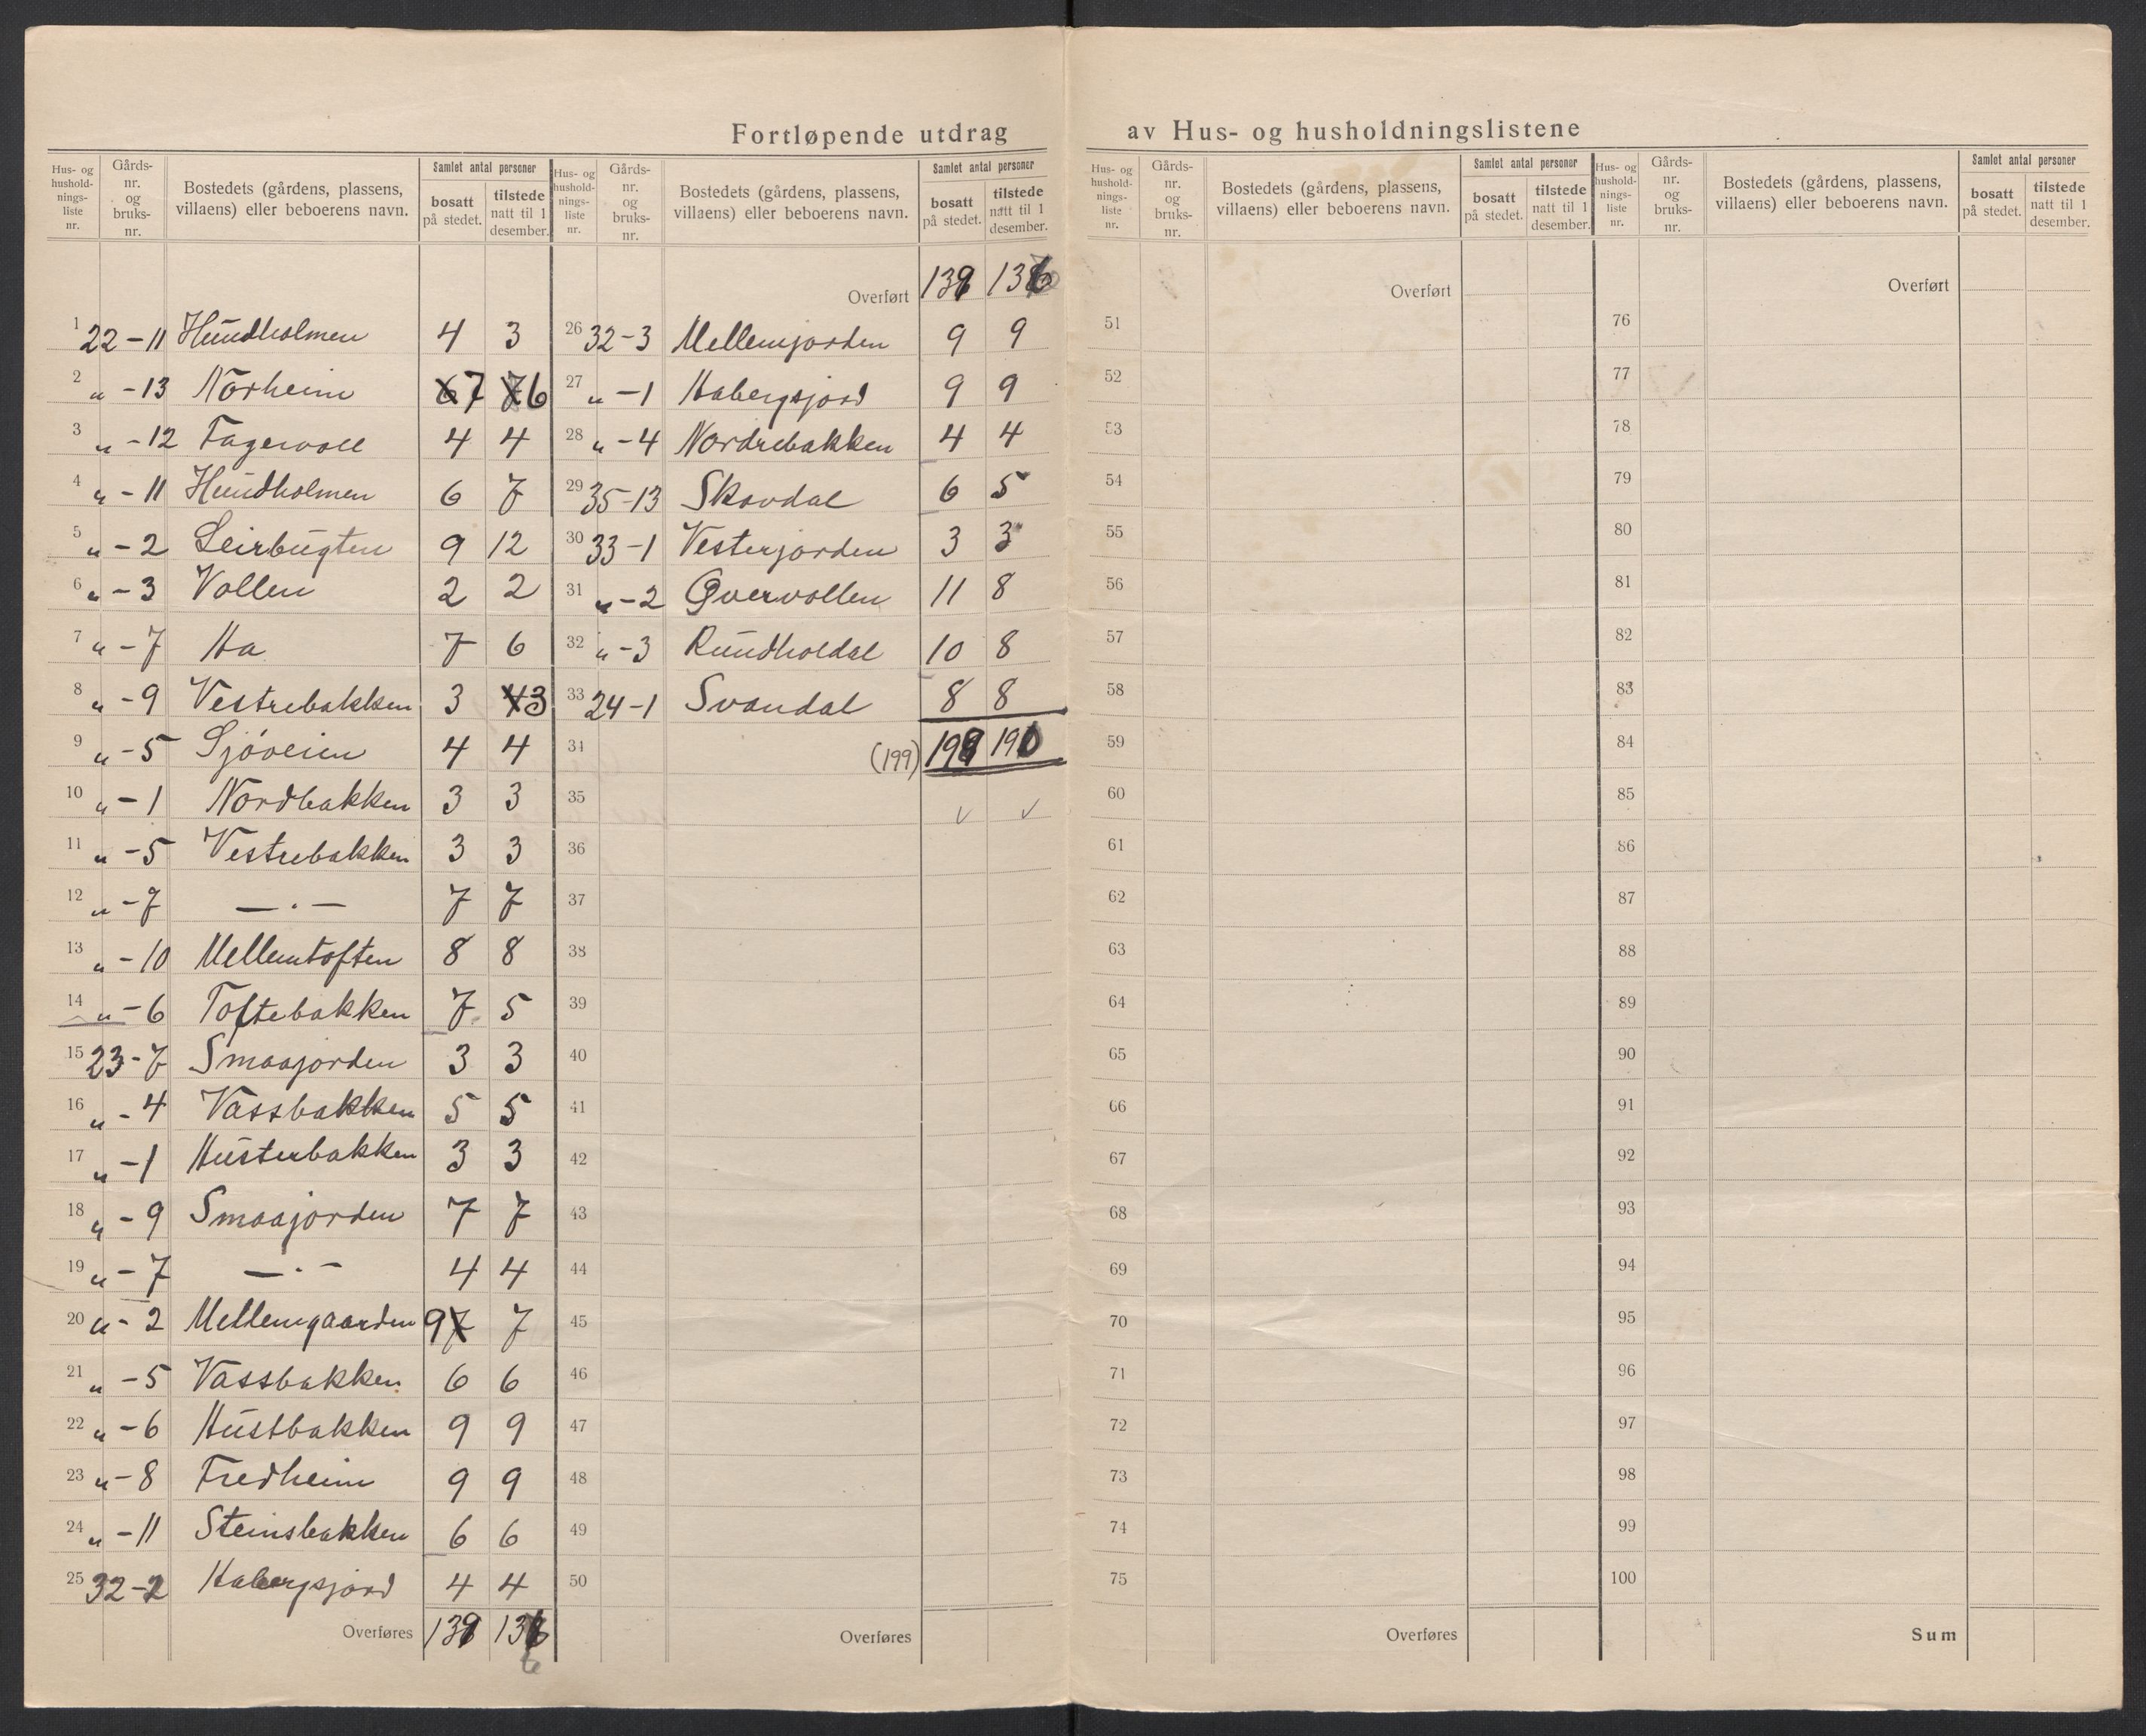 Fortløpende utdrag av Hus- og husholdningslistene
Hus- og hushold-nings-liste nr. Gårds-nr. og bruks-nr. Bostedets (gårdens, plassens, villaens) eller beboerens navn. Samlet antal personer bosatt på stedet. tilstede natt til 1 desember.
1 22-11 Hundholmen 4 3
2 „ -13 Norheim 6 7 7 6
3 „ -12 Fagervoll 4 4
4 „ -11 Hundholmen 6 7
5 „ -2 Leirbugten 9 12
6 „ -3 Vollen 2 2
7 „ -7 Ha 7 6
8 „ -9 Vestrebakken 3 4 3
9 „ -5 Sjöveien 4 4
10 „ -1 Nordbakken 3 3
11 „ -5 Vestrebakken 3 3
12 „ -7 —·— 7 7
13 „ -10 Mellemtoften 8 8
14 „ -6 Toftebakken 7 5
15 23-7 Smaajorden 3 3
16 „ -4 Vassbakken 5 5
17 „ -1 Husterbakken 3 3
18 „ -9 Smaajorden 7 7
19 „ -7 —·— 4 4
20 „ -2 Mellemgaarden 9 7 7
21 „ -5 Vassbakken 6 6
22 „ -6 Hustbakken 9 9
23 „ -8 Fredheim 9 9
24 „ -11 Steinsbakken 6 6
25 32-2 Habergsjord 4 4
Overføres 139 136
Hus- og hushold-nings-liste nr. Gårds-nr. og bruks-nr. Bostedets (gårdens, plassens, villaens) eller beboerens navn. Samlet antal personer bosatt på stedet. tilstede natt til 1 desember.
Overført 139 136
26 32-3 Mellemjorden 9 9
27 „ -1 Habergsjord 9 9
28 „ -4 Nordrebakken 4 4
29 35-13 Skovdal 6 5
30 33-1 Vesterjorden 3 3
31 „ -2 Øvervollen 11 8
32 „ -3 Rundholdal 10 8
33 24-1 Svandal 8 8
34 (199) 199 190
35 √ √
36
37
38
39
40
41
42
43
44
45
46
47
48
49
50
Overføres
Hus- og hushold-nings-liste nr. Gårds-nr. og bruks-nr. Bostedets (gårdens, plassens, villaens) eller beboerens navn. Samlet antal personer bosatt på stedet. tilstede natt til 1 desember.
Overført
51
52
53
54
55
56
57
58
59
60
61
62
63
64
65
66
67
68
69
70
71
72
73
74
75
Overføres
Hus- og hushold-nings-liste nr. Gårds-nr. og bruks-nr. Bostedets (gårdens, plassens, villaens) eller beboerens navn. Samlet antal personer bosatt på stedet. tilstede natt til 1 desember.
Overført
76
77
78
79
80
81
82
83
84
85
86
87
88
89
90
91
92
93
94
95
96
97
98
99
100
Sum